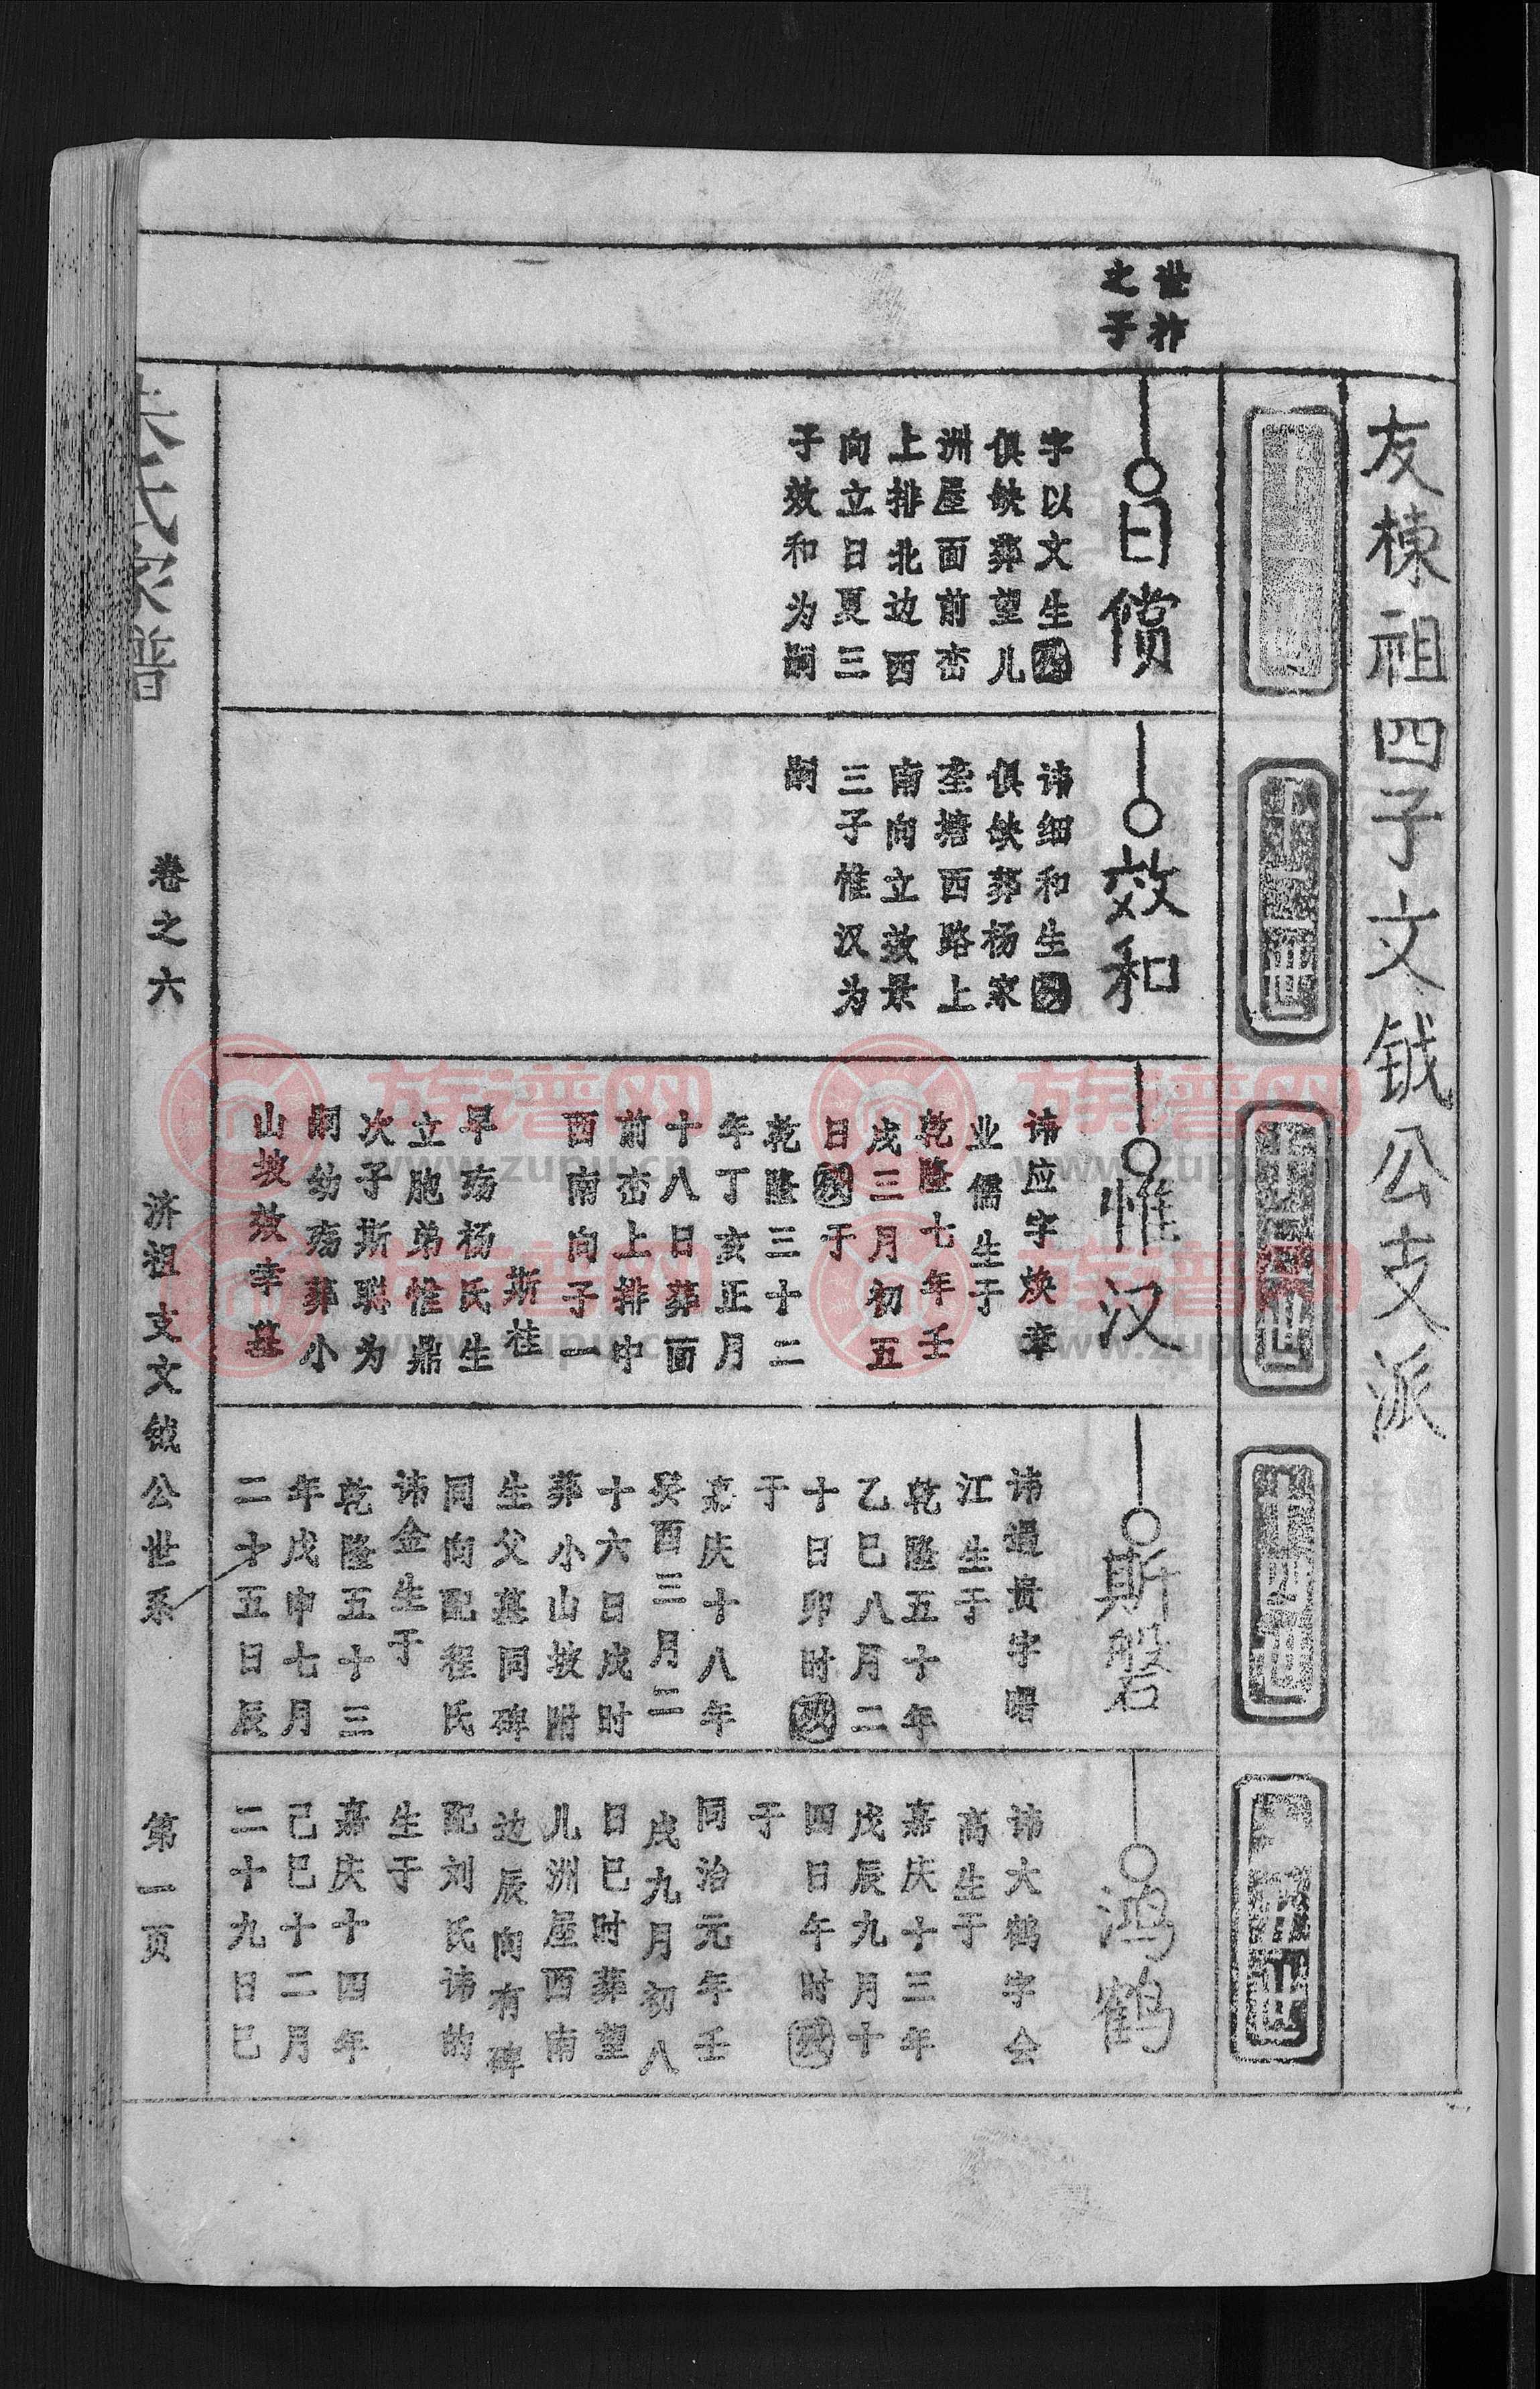 友栋祖四子文钺公支派
世祚
之子
日偿
字以文生殁
俱缺葬望儿
洲屋面前峦
上排北边西
向立日夏三
子效和为嗣
效和
讳细和生殁
俱缺葬杨家
垄塘西路上
南向立效景
三子惟汉为
嗣
惟汉
讳应字焕章
业儒生于
乾隆七年壬
戌三月初五
日殁于
乾隆三十二
年丁亥正月
十八日葬面
前峦上排中
酉南向子一
斯桂
早殇杨氏生
立胞弟惟鼎
次子斯聪为
嗣幼殇葬小
山坡效幸墓
斯磐
讳通贵字曙
江生于
乾隆五十年
乙巳八月二
十日卯时殁
于
嘉庆十八年
癸酉三月二
十六日戌时
葬小山坡附
生父墓同碑
同向配程氏
讳金生于
乾隆五十三
年戊申七月
二十五日辰
鸿鹤
讳大鹤字会
高生于
嘉庆十三年
戊辰九月十
四日午时殁
于
同治元年壬
戌九月初八
日巳时葬望
儿洲屋西南
边辰向有碑
配刘氏讳的
生于
嘉庆十四年
己巳十二月
二十九日巳
卷之六
济祖支文钺公世系
第一页
族谱网
www.zupu.cn
族谱网
www.zupu.cn
族谱网
www.zupu.cn
族谱网
www.zupu.cn